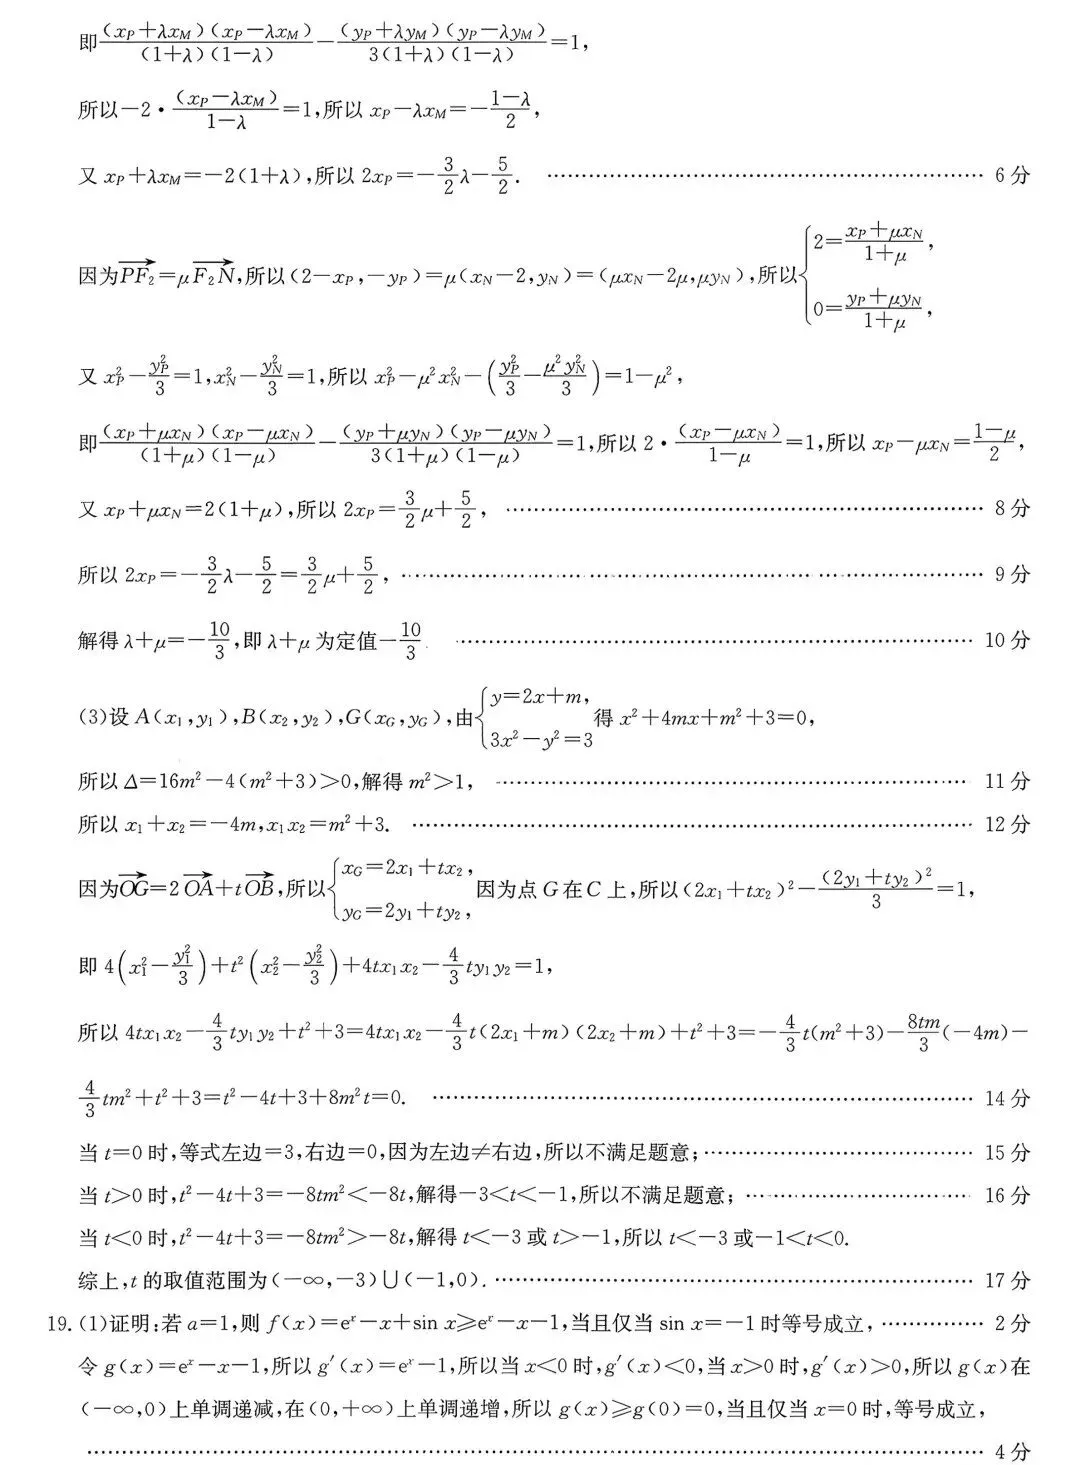 即(x_P+λx_M)(x_P−λx_M)/(1+λ)(1−λ)−(y_P+λy_M)(y_P−λy_M)/3(1+λ)(1−λ)=1,
所以−2·(x_P−λx_M)/(1−λ)=1,所以 x_P−λx_M=−(1−λ)/2,
又 x_P+λx_M=−2(1+λ),所以 2x_P=−3/2λ−5/2. …… 6分
因为PF₂→=μF₂N→,所以(2−x_P,−y_P)=μ(x_N−2,y_N)=(μx_N−2μ,μy_N),所以{2=(x_P+μx_N)/(1+μ), 0=(y_P+μy_N)/(1+μ),
又 x_P²−y_P²/3=1,x_N²−y_N²/3=1,所以 x_P²−μ²x_N²−(y_P²/3−μ²y_N²/3)=1−μ²,
即(x_P+μx_N)(x_P−μx_N)/(1+μ)(1−μ)−(y_P+μy_N)(y_P−μy_N)/3(1+μ)(1−μ)=1,所以 2·(x_P−μx_N)/(1−μ)=1,所以 x_P−μx_N=(1−μ)/2,
又 x_P+μx_N=2(1+μ),所以 2x_P=3/2μ+5/2, …… 8分
所以 2x_P=−3/2λ−5/2=3/2μ+5/2, …… 9分
解得 λ+μ=−10/3,即 λ+μ 为定值−10/3. …… 10分
(3)设 A(x₁,y₁),B(x₂,y₂),G(x_G,y_G),由{y=2x+m, 3x²−y²=3 得 x²+4mx+m²+3=0,
所以 Δ=16m²−4(m²+3)>0,解得 m²>1, …… 11分
所以 x₁+x₂=−4m,x₁x₂=m²+3. …… 12分
因为OG→=2OA→+tOB→,所以{x_G=2x₁+tx₂, y_G=2y₁+ty₂, 因为点 G 在 C 上,所以(2x₁+tx₂)²−(2y₁+ty₂)²/3=1,
即 4(x₁²−y₁²/3)+t²(x₂²−y₂²/3)+4tx₁x₂−4/3ty₁y₂=1,
所以 4tx₁x₂−4/3ty₁y₂+t²+3=4tx₁x₂−4/3t(2x₁+m)(2x₂+m)+t²+3=−4/3t(m²+3)−8tm/3(−4m)−
4/3tm²+t²+3=t²−4t+3+8m²t=0. …… 14分
当 t=0 时,等式左边=3,右边=0,因为左边≠右边,所以不满足题意; …… 15分
当 t>0 时,t²−4t+3=−8tm²<−8t,解得−3<t<−1,所以不满足题意; …… 16分
当 t<0 时,t²−4t+3=−8tm²>−8t,解得 t<−3 或 t>−1,所以 t<−3 或−1<t<0.
综上,t 的取值范围为(−∞,−3)∪(−1,0). …… 17分
19. (1)证明:若 a=1,则 f(x)=eˣ−x+sin x≥eˣ−x−1,当且仅当 sin x=−1 时等号成立, …… 2分
令 g(x)=eˣ−x−1,所以 g′(x)=eˣ−1,所以当 x<0 时,g′(x)<0,当 x>0 时,g′(x)>0,所以 g(x)在
(−∞,0)上单调递减,在(0,+∞)上单调递增,所以 g(x)≥g(0)=0,当且仅当 x=0 时,等号成立,
…… 4分